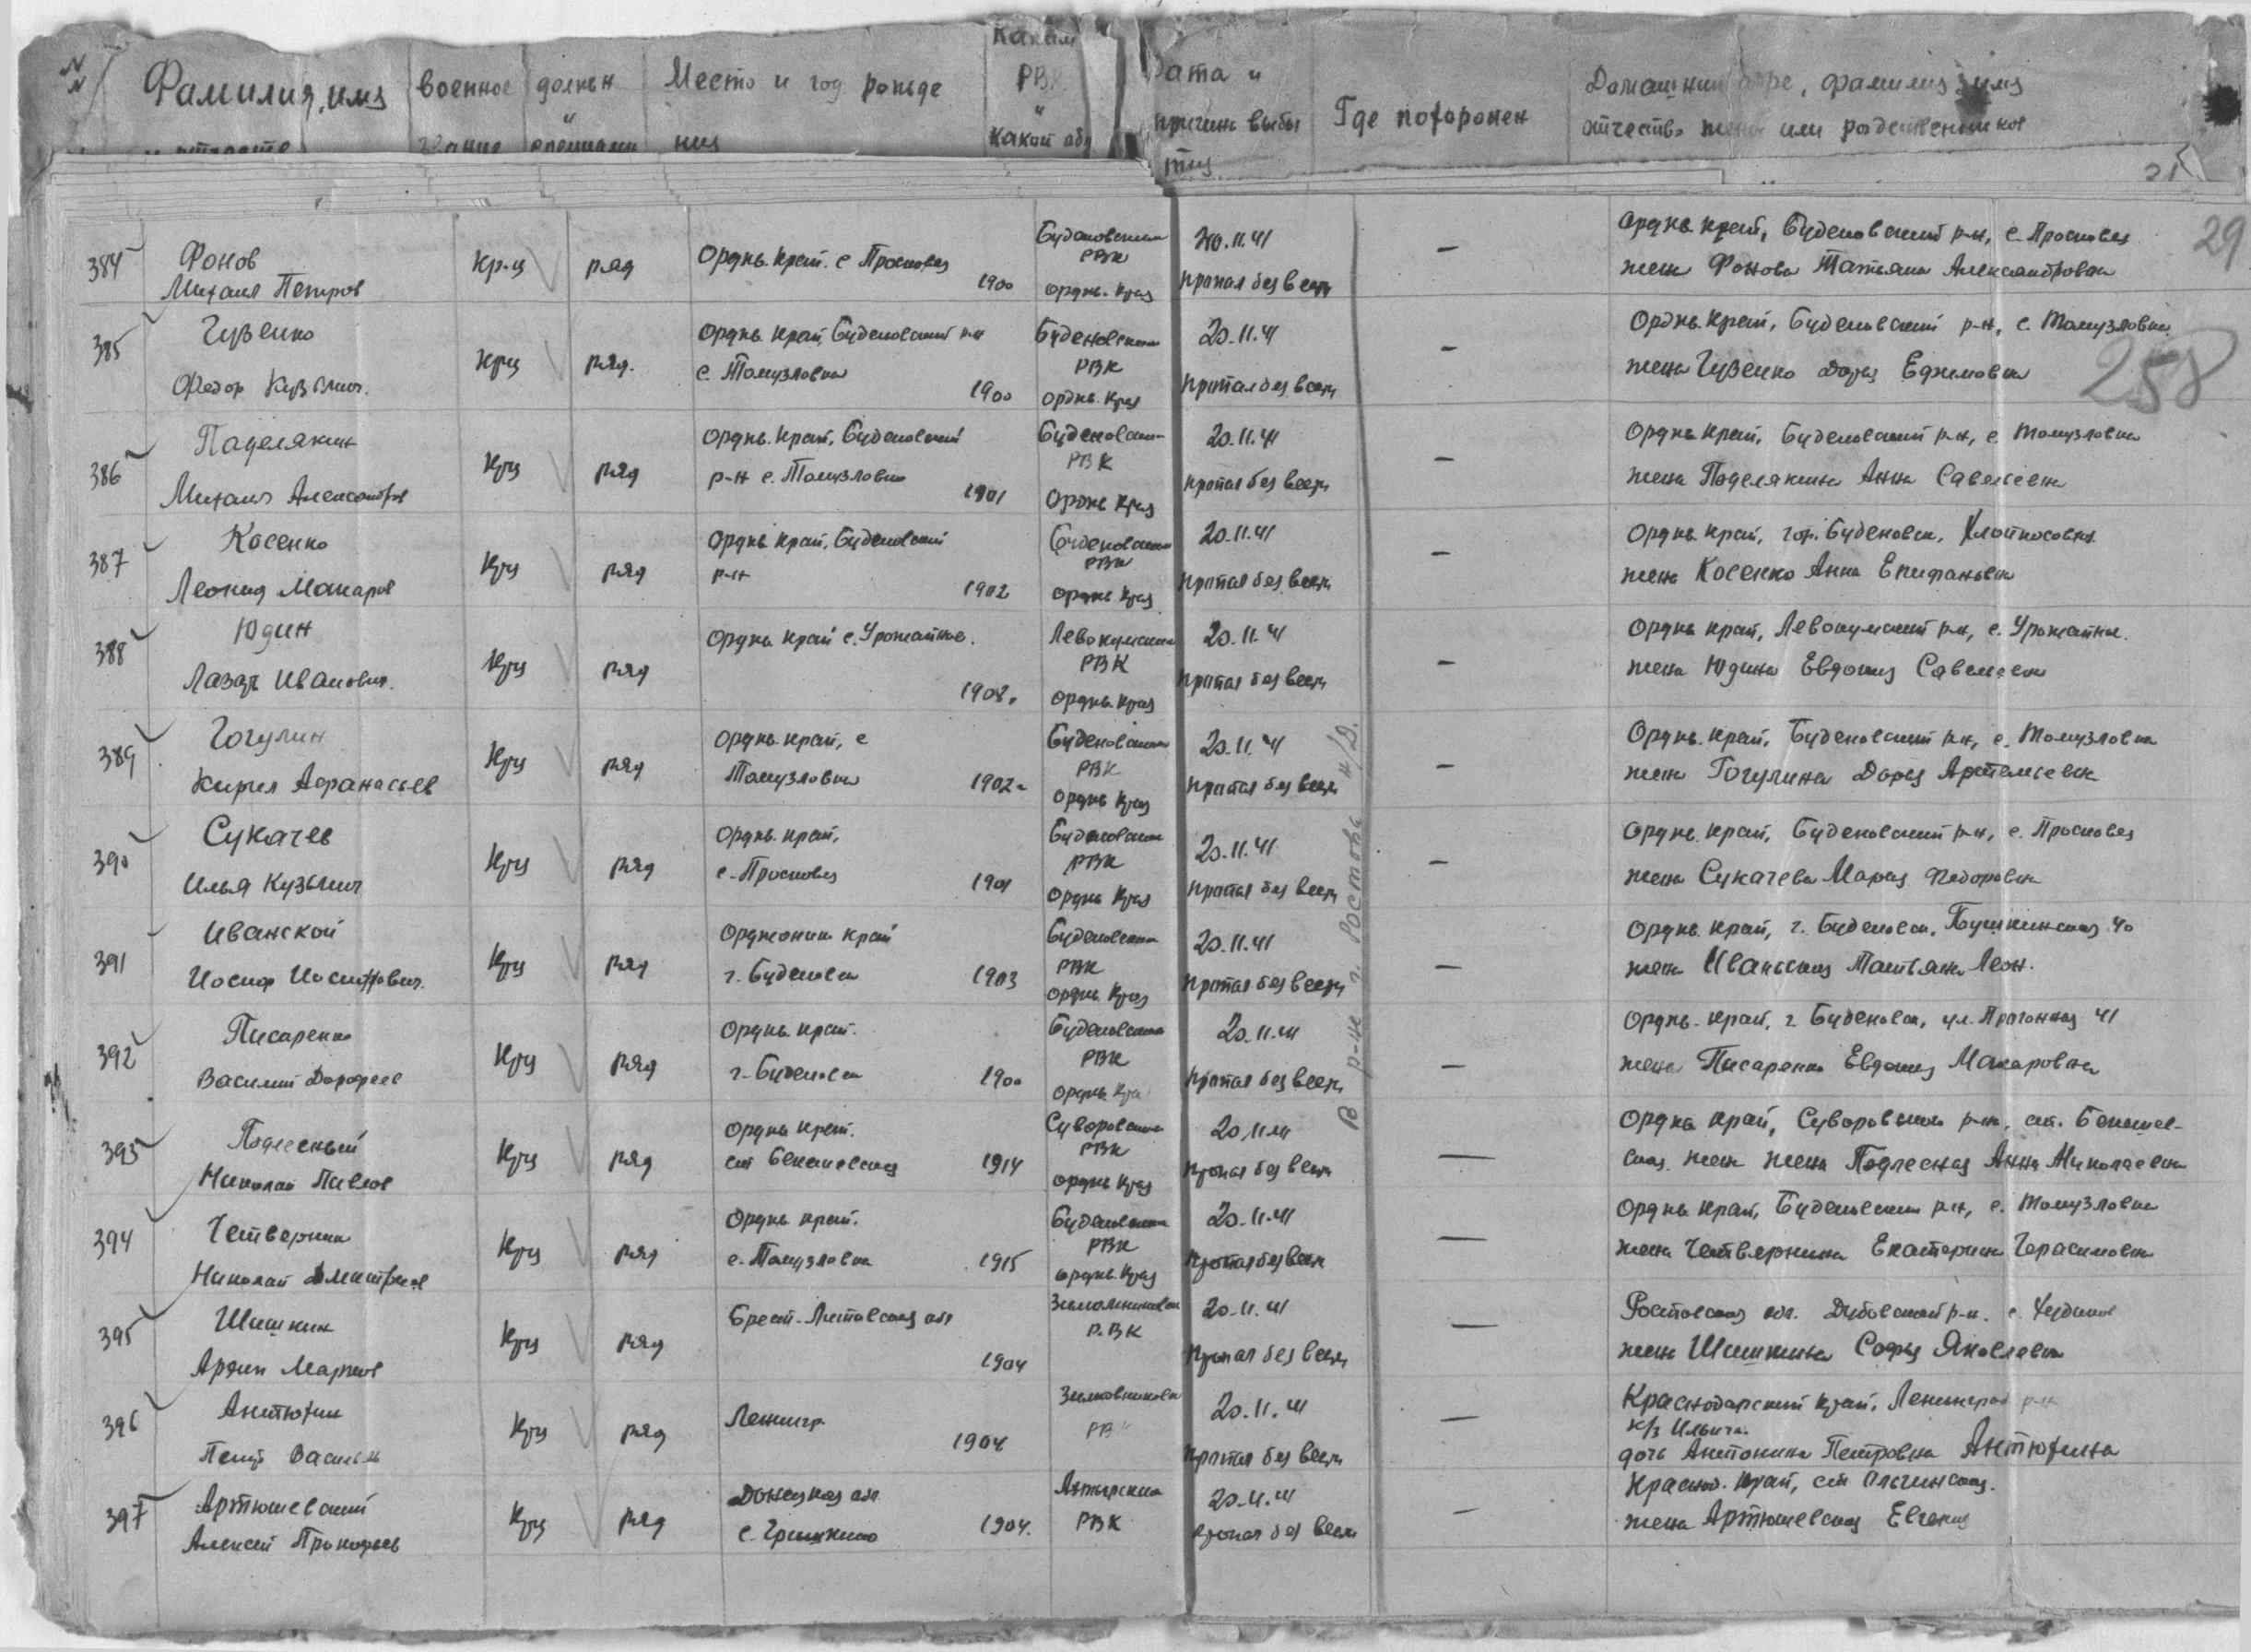 Фамилия, имя
военное
должн
и
Место и год рожде
ния
Каким
РВК
и
какой обл
Дата и
причин выбы
тия
Где похоронен
Домашний адре, фамилия, имя
отчество жены или родственников
29
258
384
Фонов
Михаил Петров
кр-ц
ряд
Орджк. край. с Прасковея
1900
Буденовским
РВК
Орджк. края
20.11.41
пропал без вести
—
Орджк. край, Буденовский р-н, с. Прасковея
жена Фонова Татьяна Александровна
385
Гузенко
Федор Кузьмич.
Крц
ряд.
Орджк. край Буденовский р-н
с. Томузловка
1900
Буденовским
РВК
Орджк. края
20.11.41
пропал без вести
—
Орджк. край, Буденовский р-н, с. Томузловка
жена Гузенко Дарья Ефимовна
386
Поделякин
Михаил Александров
Крц
ряд
Орджк. край, Буденовский
р-н с. Томузловка
1901
Буденовским
РВК
Орджк края
20.11.41
пропал без вести
—
Орджк край, Буденовский р-н, с. Томузловка
жена Поделякина Анна Савельевна
387
Косенко
Леонид Макаров
Крц
ряд
Орджк край, Буденовский
р-н
1902
Буденовским
РВК
Орджк края
20.11.41
пропал без вести
—
Орджк край, гор. Буденовск,
жена Косенко Анна Епифановна
388
Юдин
Лазарь Иванович.
Крц
ряд
Орджк край с. Урожайное.
1908.
Левокумским
РВК
Орджк. края
20.11.41
пропал без вести
—
Орджк край, Левокумский р-н, с. Урожайное.
жена Юдина Евдокия Савельевна
389
Гогулин
Кирил Афанасьев
Крц
ряд
Орджк. край, с
Томузловка
1902
Буденовским
РВК
Орджк края
20.11.41
пропал без вести
—
Орджк. край, Буденовский р-н, с. Томузловка
жена Гогулина Дарья Артемьевна
390
Сукачев
Илья Кузьмич
Крц
ряд
Орджк. край,
с. Прасковея
1901
Буденовским
РВК
Орджк края
20.11.41
пропал без вести
—
Орджк. край, Буденовский р-н, с. Прасковея
жена Сукачева Мария Федоровна
391
Иванской
Иосиф Иосифович.
Крц
ряд
Орджоник край
г. Буденовск
1903
Буденовским
РВК
Орджк. края
20.11.41
пропал без вести
—
Орджк. край, г. Буденовск, Пушкинская 40
жена Иванская Татьяна Леон.
392
Писаренко
Василий Дорофеев
Крц
ряд
Орджк. край.
г. Буденовск
1900
Буденовским
РВК
Орджк. кра
20.11.41
пропал без вести
—
Орджк. край, г. Буденовск, ул. Прогонная 41
жена Писаренко Евдокия Макаровна
393
Подлесный
Николай Павлов
Крц
ряд
Орджк край.
ст Бекешевская
1914
Суворовским
РВК
Орджк края
20.11.41
пропал без вести
—
Орджк край, Суворовский р-н, ст. Бекешев-
ская жена жена Подлесная Анна Николаевна
394
Четверкин
Николай Дмитриев
Крц
ряд
Орджк край.
с. Томузловка
1915
Буденовским
РВК
Орджк. края
20.11.41
пропал без вести
—
Орджк край, Буденовский р-н, с. Томузловка
жена Четверкина Екатерина Герасимовна
395
Шишкин
Крц
ряд
Брест-Литовская обл
1904
Зимовниковск
Р.ВК
20.11.41
пропал без вести
—
Ростовская обл. Дубовский р-н. с.
жена Шишкина Софья Яковлевна
396
Антюхин
Петр Василь
Крц
ряд
Ленингр.
1904
Зимовниковск
РВК
20.11.41
пропал без вести
—
Краснодарский край, Ленинград р-н
к/з Ильича.
дочь Антонина Петровна Антюхина
397
Артюшевский
Алексей Прокофьев
Крц
ряд
Донецкая обл
с. Гришкино
1904.
Ахтырским
РВК
20.11.41
пропал без вести
—
Краснод. край, ст Ольгинская.
жена Артюшевская Евгения
В р-не г. Ростова н/Д.